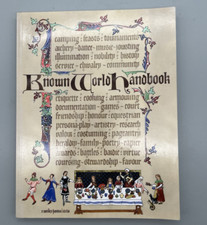 camping · feasts · tournaments
archery · dance · music · jousting
illumination · nobility · history
chivalry · community
Known World Handbook
etiquette · cooking · armouring
documentation · games · court
friendship · honour · equestrian
persona-play · artistry · research
costuming · pageantry
heraldry · family · poetry
wards · battles · bardic · virtue
coursing · stewardship · favour